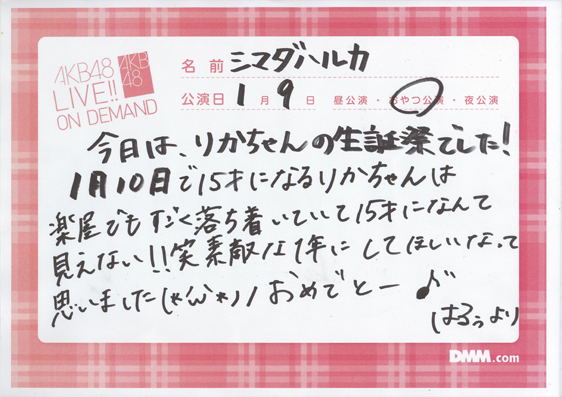 AKB48
LIVE!!
ON DEMAND
AKB
48
名前 シマダハルカ
公演日 1月9日 昼公演・おやつ公演・夜公演
今日は、りかちゃんの生誕祭でした!
1月10日で15才になるりかちゃんは
楽屋でもすごく落ち着いていて15才になんて
見えない!!笑素敵な1年にしてほしいなって
思いました(*^ω^*)ノおめでとー♪
はるぅより
DMM.com